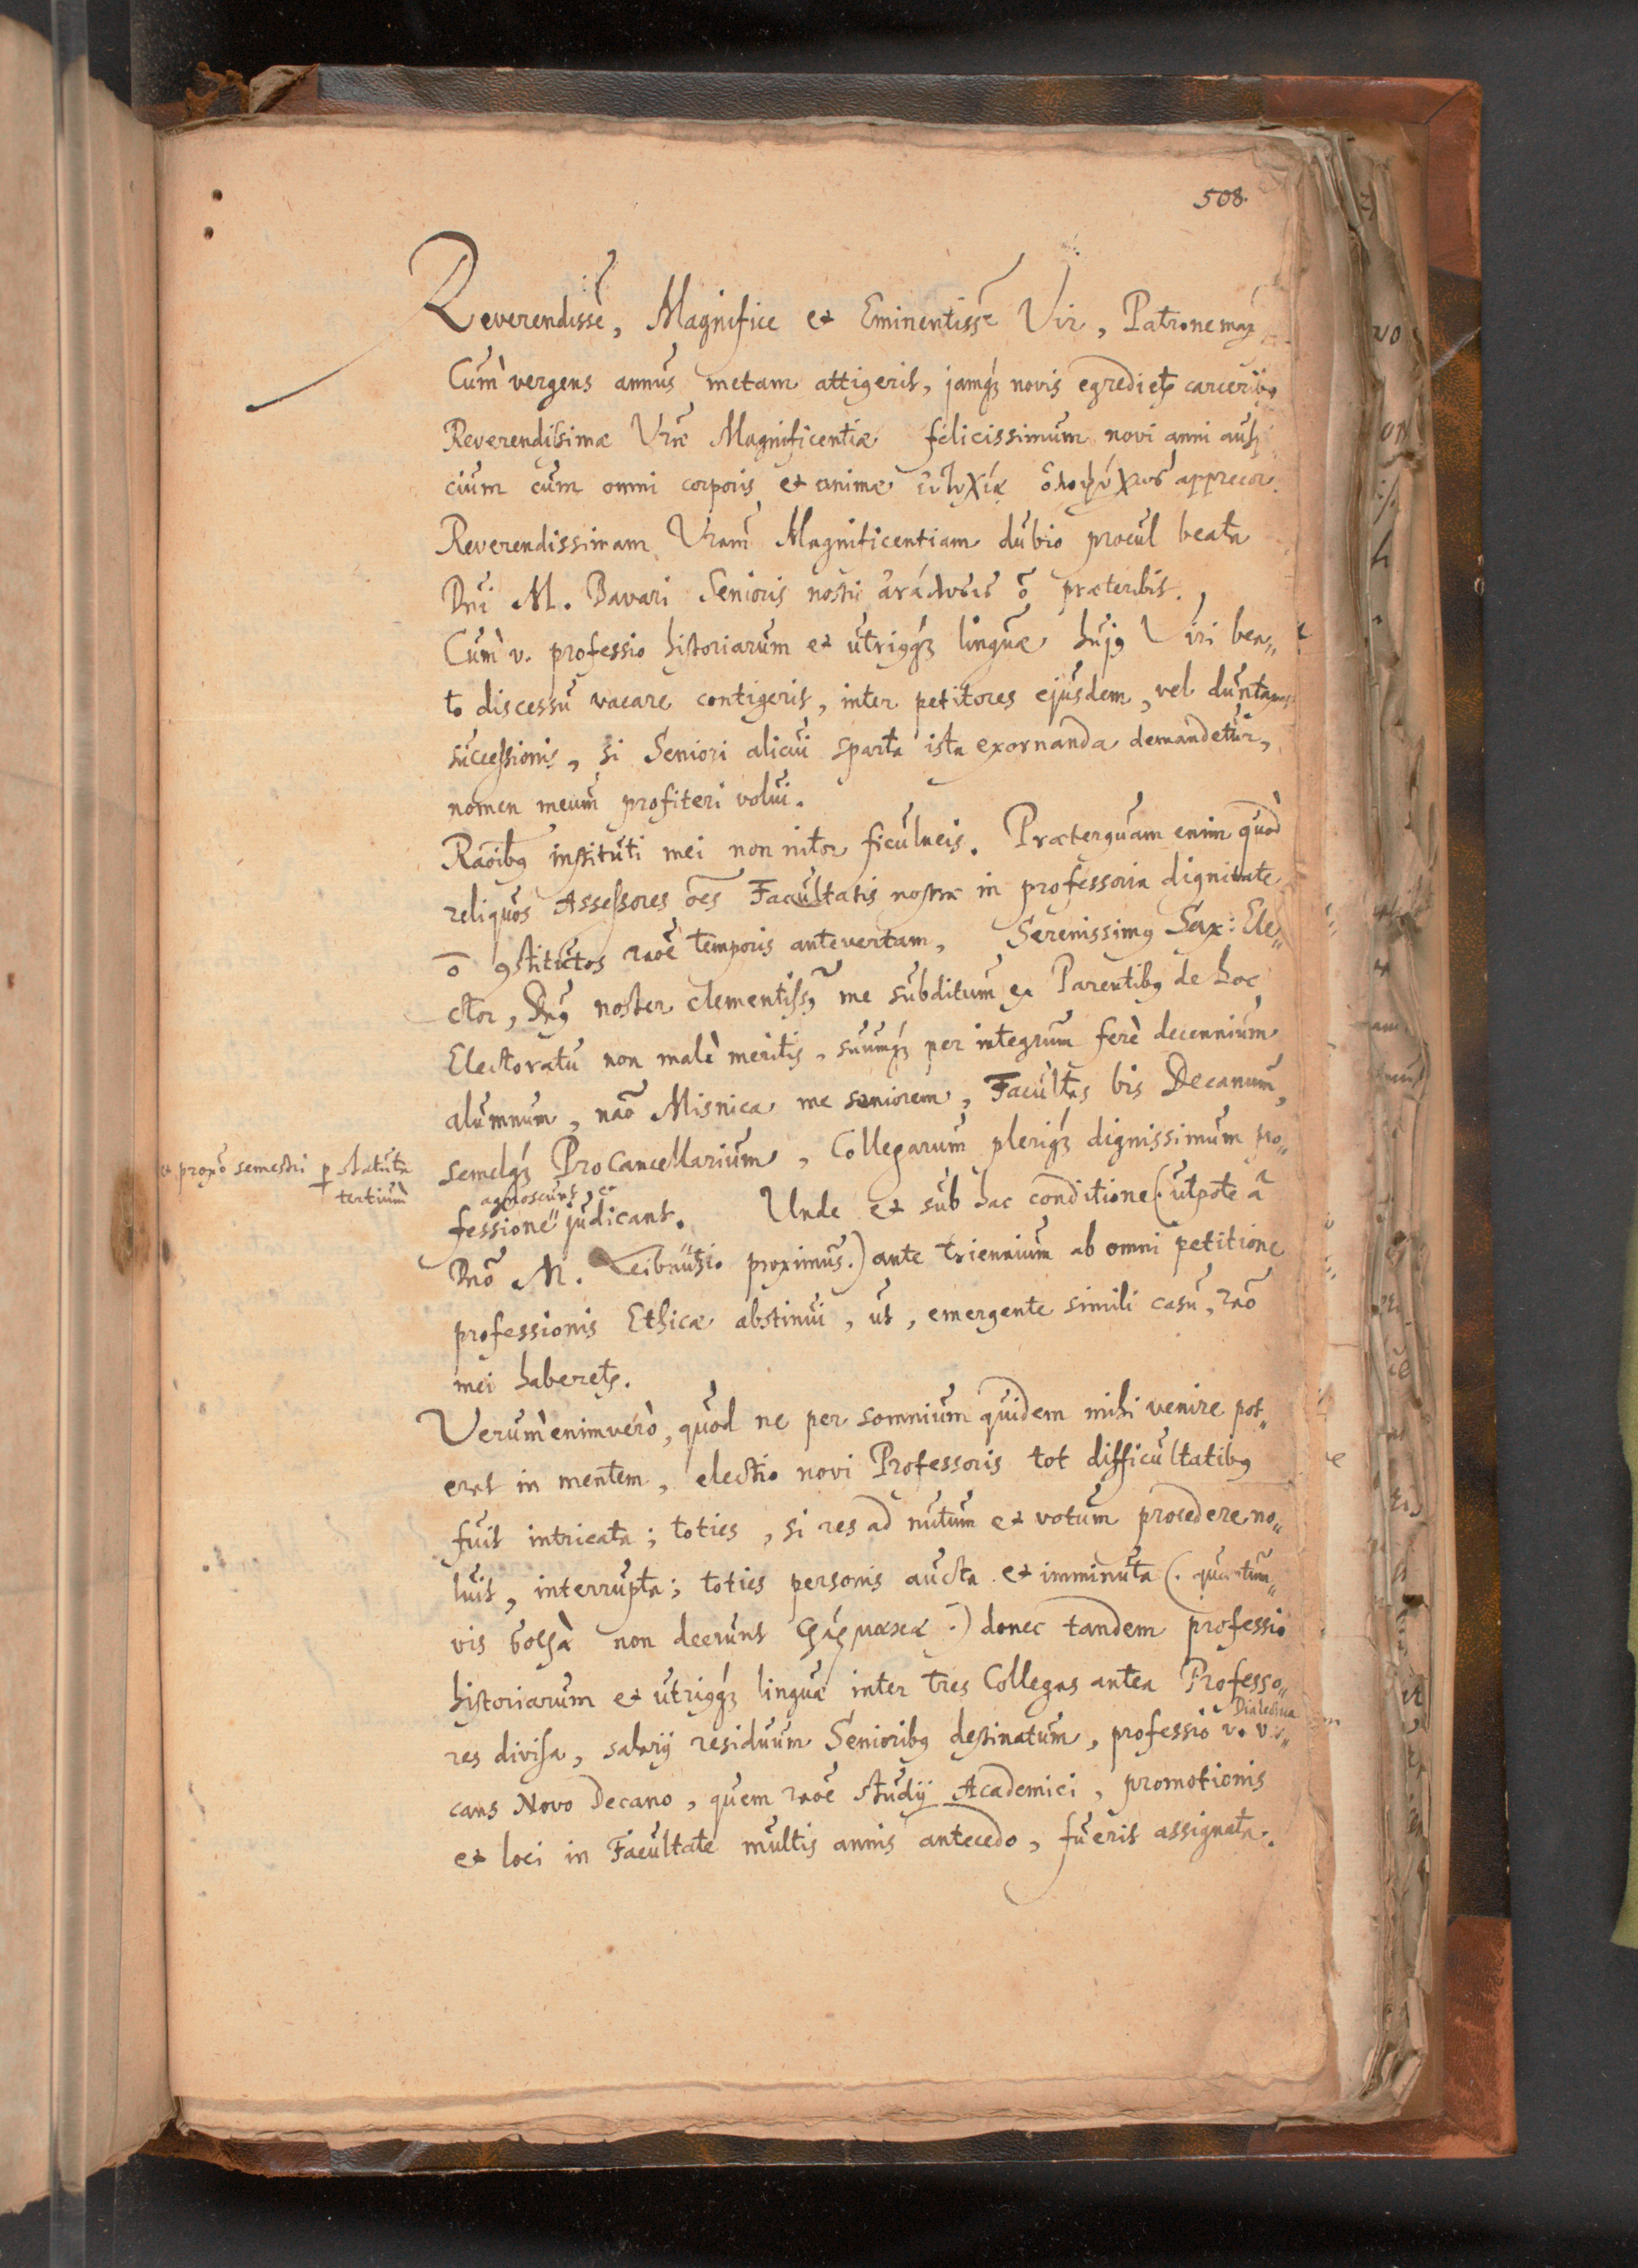 508.
Reverendissē, Magnifice et Eminentissē Vir, Patrone max
Cùm vergens annus metam attigerit, jamq́ꝫ novis egrediet᷑ carceribꝰ
Reverendissimæ Vræ̃ Magnificentiæ felicissimum novi anni auspi
cium cum omni corporis et animæ εὐτυχίᾳ ὁλοψύχως apprecor.
Reverendissimam Vram̃ Magnificentiam dubio procul beata
Dnĩ M. Bavari Senioris nostri ἀνάλυσις õ præteribit.
Cùm v. professio historiarum et utriq́ꝫ linguæ hujꝰ Viri bea„
to discessu vacare contigerit, inter petitores ejusdem, vel duntaxat
successionis, si Seniori alicui sparta ista exornanda demandetur,
nomen meum profiteri volui.
Raõibꝰ instituti mei non nitor ficulneis. Præterquam enim quòd
reliquos Assessores oẽs Facultatis nostræ in professoria dignitate
õ ꝯstitutos raõe temporis antevertam, Serenissimꝰ Sax: Ele„
ctor, Dnꝰ noster clementissꝰ me subditum ex Parentibꝰ de hoc
Electoratu non malè meritis, suumq́ꝫ per integrum ferè decennium
alumnum, naõ Misnica me seniorem, Facultas bis Decanum,
et proxõ semestri ꝑ statuta
tertiùm
semelq́ꝫ ProCancellarium, Collegarum pleriq́ꝫ dignissimum pro„
agnoscunt, eo
fessione judicant. Unde et sub hac conditione (: utpote à
Dnõ M. Leibnützio proximus :) ante triennium ab omni petitione
professionis Ethicæ abstinui, ut, emergente simili casu, raõ
mei haberet᷑.
Verùmenimverò, quod ne per somnium quidem mihi venire pot„
erat in mentem, electio novi Professoris tot difficultatibꝰ
fuit intricata; toties, si res ad nutum et votum procedere no„
luit, interrupta; toties personis aucta et imminuta (: quantum„
vis σοφὰ non deerunt φάρμακα :) donec tandem professio
historiarum et utriq́ꝫ linguæ inter tres Collegas antea Professo„
Dialectica
res divisa, salarij residuum Senioribꝰ destinatum, professio v. va„
cans Novo Decano, quem raõe studij Academici, promotionis
et loci in Facultate multis annis antecedo, fuerit assignata.